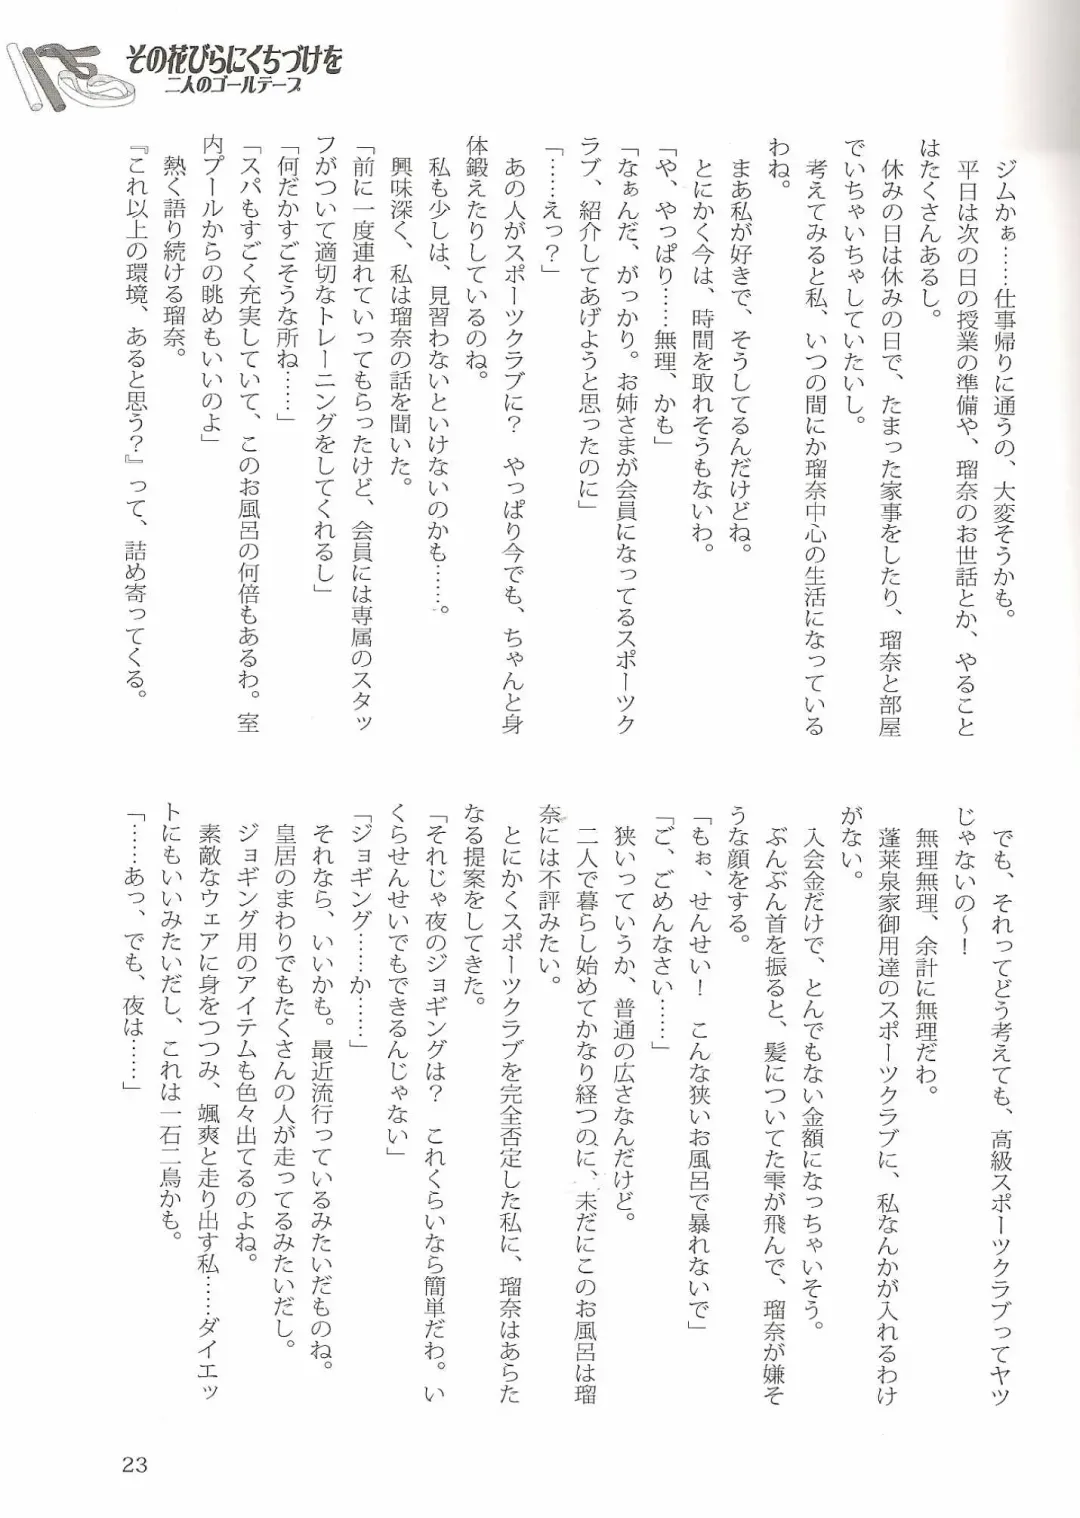 その花びらにくちづけを
二人のゴールテープ
ジムかぁ……仕事帰りに通うの、大変そうかも。
平日は次の日の授業の準備や、瑠奈のお世話とか、やること
はたくさんあるし。
休みの日は休みの日で、たまった家事をしたり、瑠奈と部屋
でいちゃいちゃしていたいし。
考えてみると私、いつの間にか瑠奈中心の生活になっている
わね。
まあ私が好きで、そうしてるんだけどね。
とにかく今は、時間を取れそうもないわ。
「や、やっぱり……無理、かも」
「なぁんだ、がっかり。お姉さまが会員になってるスポーツク
ラブ、紹介してあげようと思ったのに」
「……えっ？」
あの人がスポーツクラブに？　やっぱり今でも、ちゃんと身
体鍛えたりしているのね。
私も少しは、見習わないといけないのかも……。
興味深く、私は瑠奈の話を聞いた。
「前に一度連れていってもらったけど、会員には専属のスタッ
フがついて適切なトレーニングをしてくれるし」
「何だかすごそうな所ね……」
「スパもすごく充実していて、このお風呂の何倍もあるわ。室
内プールからの眺めもいいのよ」
熱く語り続ける瑠奈。
『これ以上の環境、あると思う？』って、詰め寄ってくる。
でも、それってどう考えても、高級スポーツクラブってヤツ
じゃないの～！
無理無理、余計に無理だわ。
蓬莱泉家御用達のスポーツクラブに、私なんかが入れるわけ
がない。
入会金だけで、とんでもない金額になっちゃいそう。
ぶんぶん首を振ると、髪についてた雫が飛んで、瑠奈が嫌そ
うな顔をする。
「もぉ、せんせい！　こんな狭いお風呂で暴れないで」
「ご、ごめんなさい……」
狭いっていうか、普通の広さなんだけど。
二人で暮らし始めてかなり経つのに、未だにこのお風呂は瑠
奈には不評みたい。
とにかくスポーツクラブを完全否定した私に、瑠奈はあらた
なる提案をしてきた。
「それじゃ夜のジョギングは？　これくらいなら簡単だわ。い
くらせんせいでもできるんじゃない」
「ジョギング……か……」
それなら、いいかも。最近流行っているみたいだものね。
皇居のまわりでもたくさんの人が走ってるみたいだし。
ジョギング用のアイテムも色々出てるのよね。
素敵なウェアに身をつつみ、颯爽と走り出す私……ダイエッ
トにもいいみたいだし、これは一石二鳥かも。
「……あっ、でも、夜は……」
23